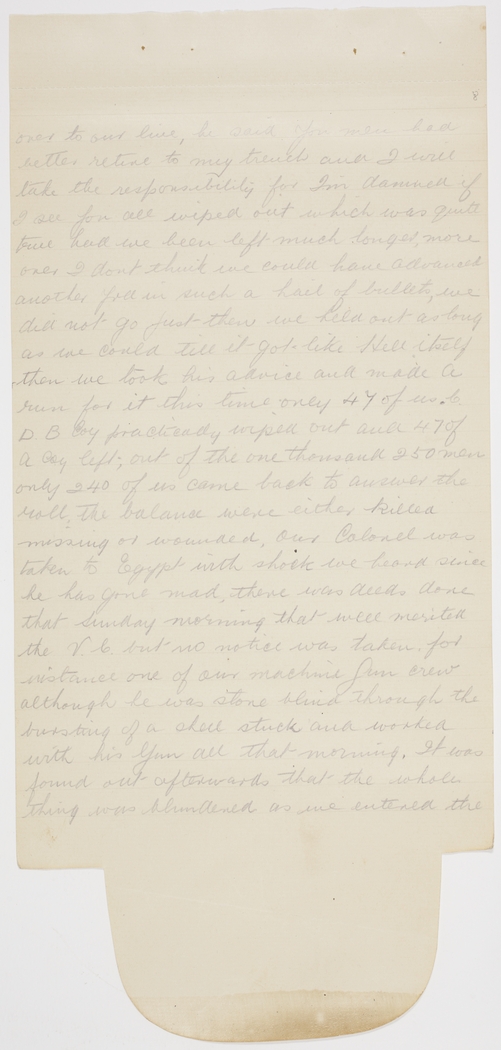 8
over to our line, he said you men had
better retire to my trench and I will
take the responsibility for I'm damned if
I see you all wiped out which was quite
true had we been left much longer, more
over I dont think we could have advanced
another yrd in such a hail of bullets, we
did not go just then we held out as long
as we could till it got like Hell itself
then we took his advice and made a
run for it this time only 47 of us. C
D B Coy practically wiped out and 47 of
A Coy left, out of the one thousand 250 men
only 240 of us came back to answer the
roll, the balance were either killed
missing or wounded, our Colonel was
taken to Egypt with shock we heard since
he has gone mad, there was deeds done
that Sunday morning that well merited
the V.C. but no notice was taken, for
instance one of our machine gun crew
although he was stone blind through the
bursting of a shell stuck and worked
with his Gun all that morning. It was
found out afterwards that the whole
thing was blundered as we entered the